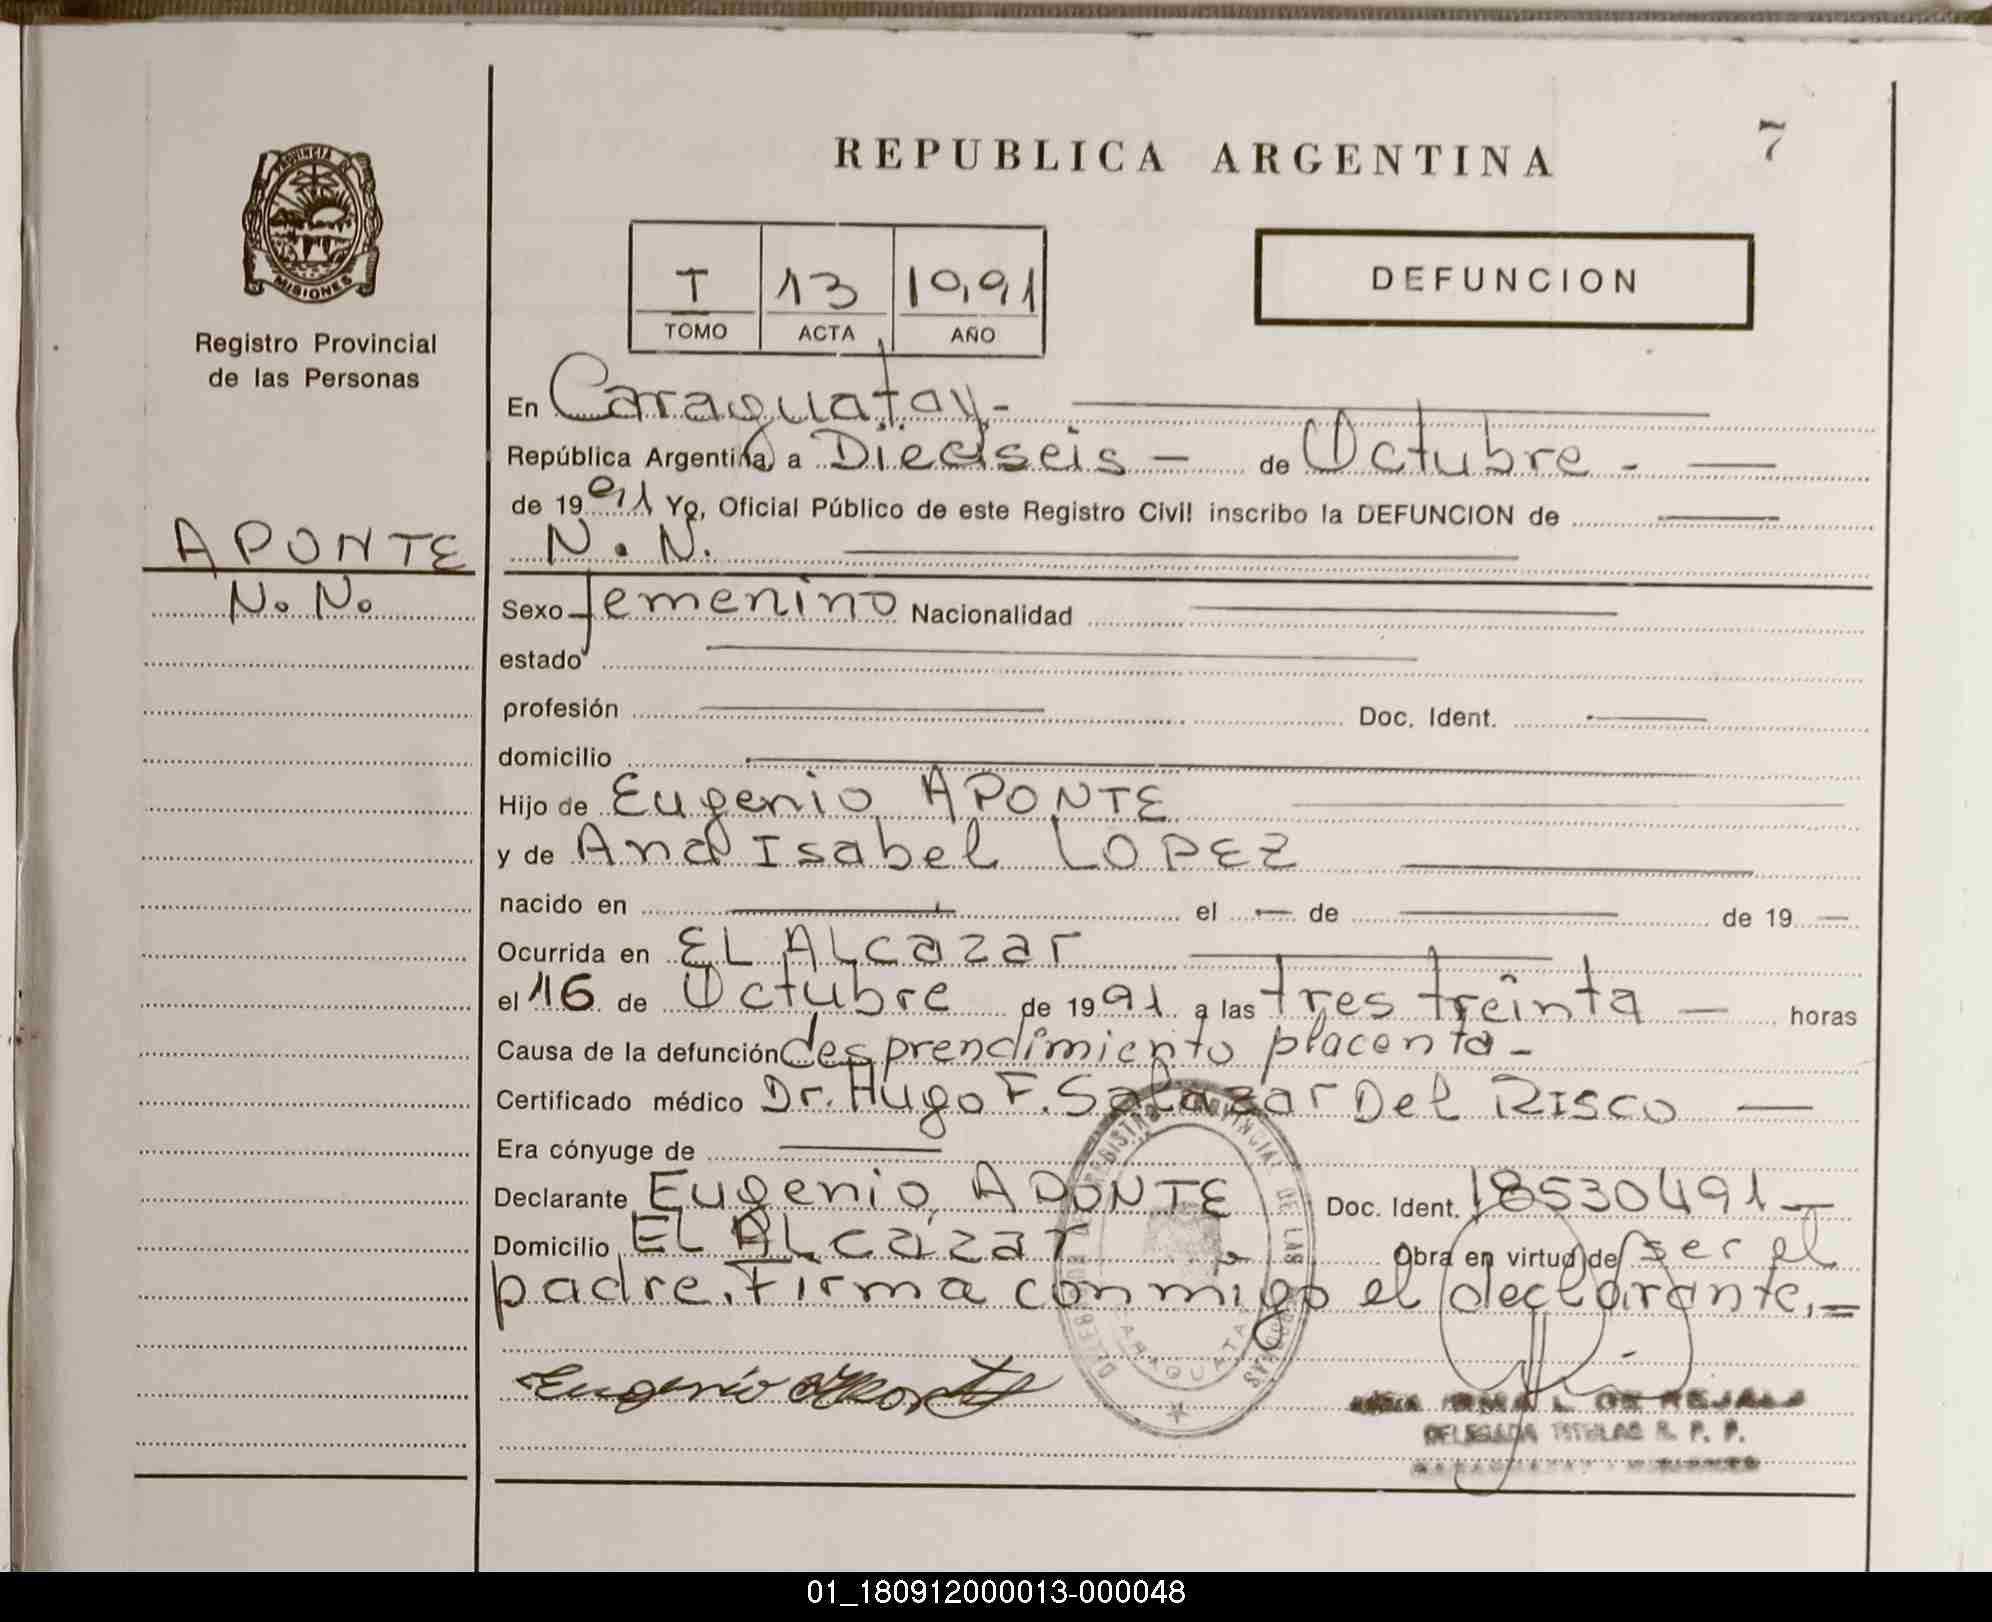 REPUBLICA ARGENTINA
7
PROVINCIA DE
MISIONES
Registro Provincial
de las Personas
T 13 1991
TOMO ACTA AÑO
DEFUNCION
En Caraguatay.-
República Argentina, a Dieciseis - de Octubre. -
de 1991 Yo, Oficial Público de este Registro Civil inscribo la DEFUNCION de
APONTE
N. N.
N. N.
Sexo femenino Nacionalidad
estado
profesión Doc. Ident.
domicilio
Hijo de Eugenio APONTE
y de Ana Isabel LOPEZ
nacido en el — de de 19 —
Ocurrida en EL ALcazar
el 16 de Octubre de 1991 a las tres treinta — horas
Causa de la defunción desprendimiento placenta -
Certificado médico Dr. Hugo F. Salazar Del Risco —
Era cónyuge de
Declarante Eugenio APONTE Doc. Ident. 18530491 —
Domicilio EL ALcazar Obra en virtud de ser el
padre. Firma conmigo el declarante.=
REGISTRO PROVINCIAL DE LAS PERSONAS
CARAGUATAY
Eugenio Aponte
DELEGADA TITULAR R. P. P.
01_180912000013-000048